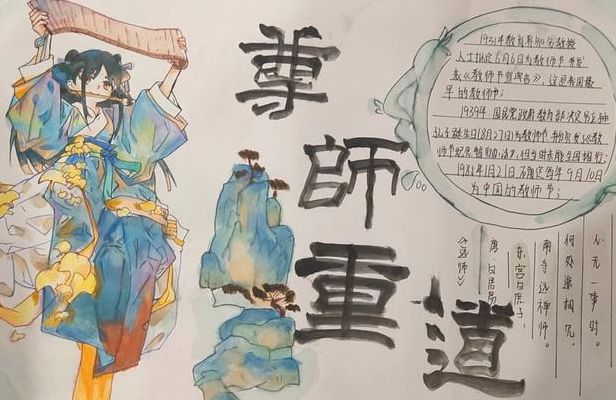 尊
師
重
道
1931年教育界知名教授
人士拟定6月6日为教师节,并发
表《教师节宣言》,这是我国最
早的教师节;
1939年国民党政府教育部决定另立
孔子诞生日(8月27日)为教师节
师节纪念暂行办法》,但当时未能全国推行
1981年1月21日确定每年9月10日
为中国的教师节;
《远师》
唐 白居易
东宫白庶子,
南寺远禅师。
何处遥相见,
心无一事时。